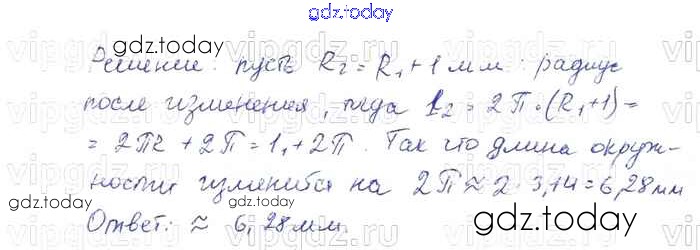 gdz.today
gdz.today
Решение: пусть R₂ = R₁ + 1 мм радиус
после изменения, тогда l₂ = 2π·(R₁+1) =
= 2πR + 2π = l₁ + 2π. Так что длина окруж-
ности изменится на 2π ≈ 2·3,14 = 6,28 мм
Ответ: ≈ 6,28 мм.
gdz.today
gdz.today
gdz.today